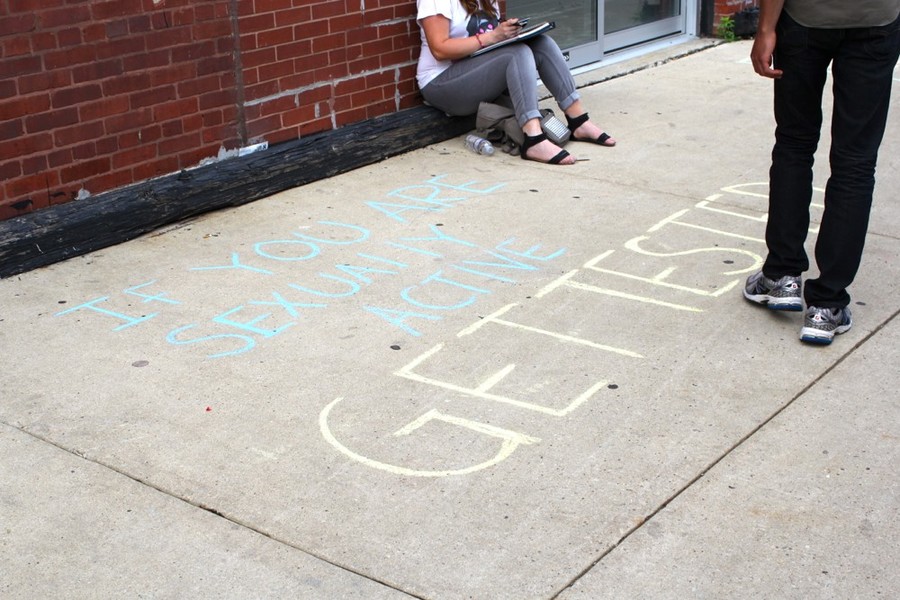 IF YOU ARE
SEXUALLY
ACTIVE
GET TESTED